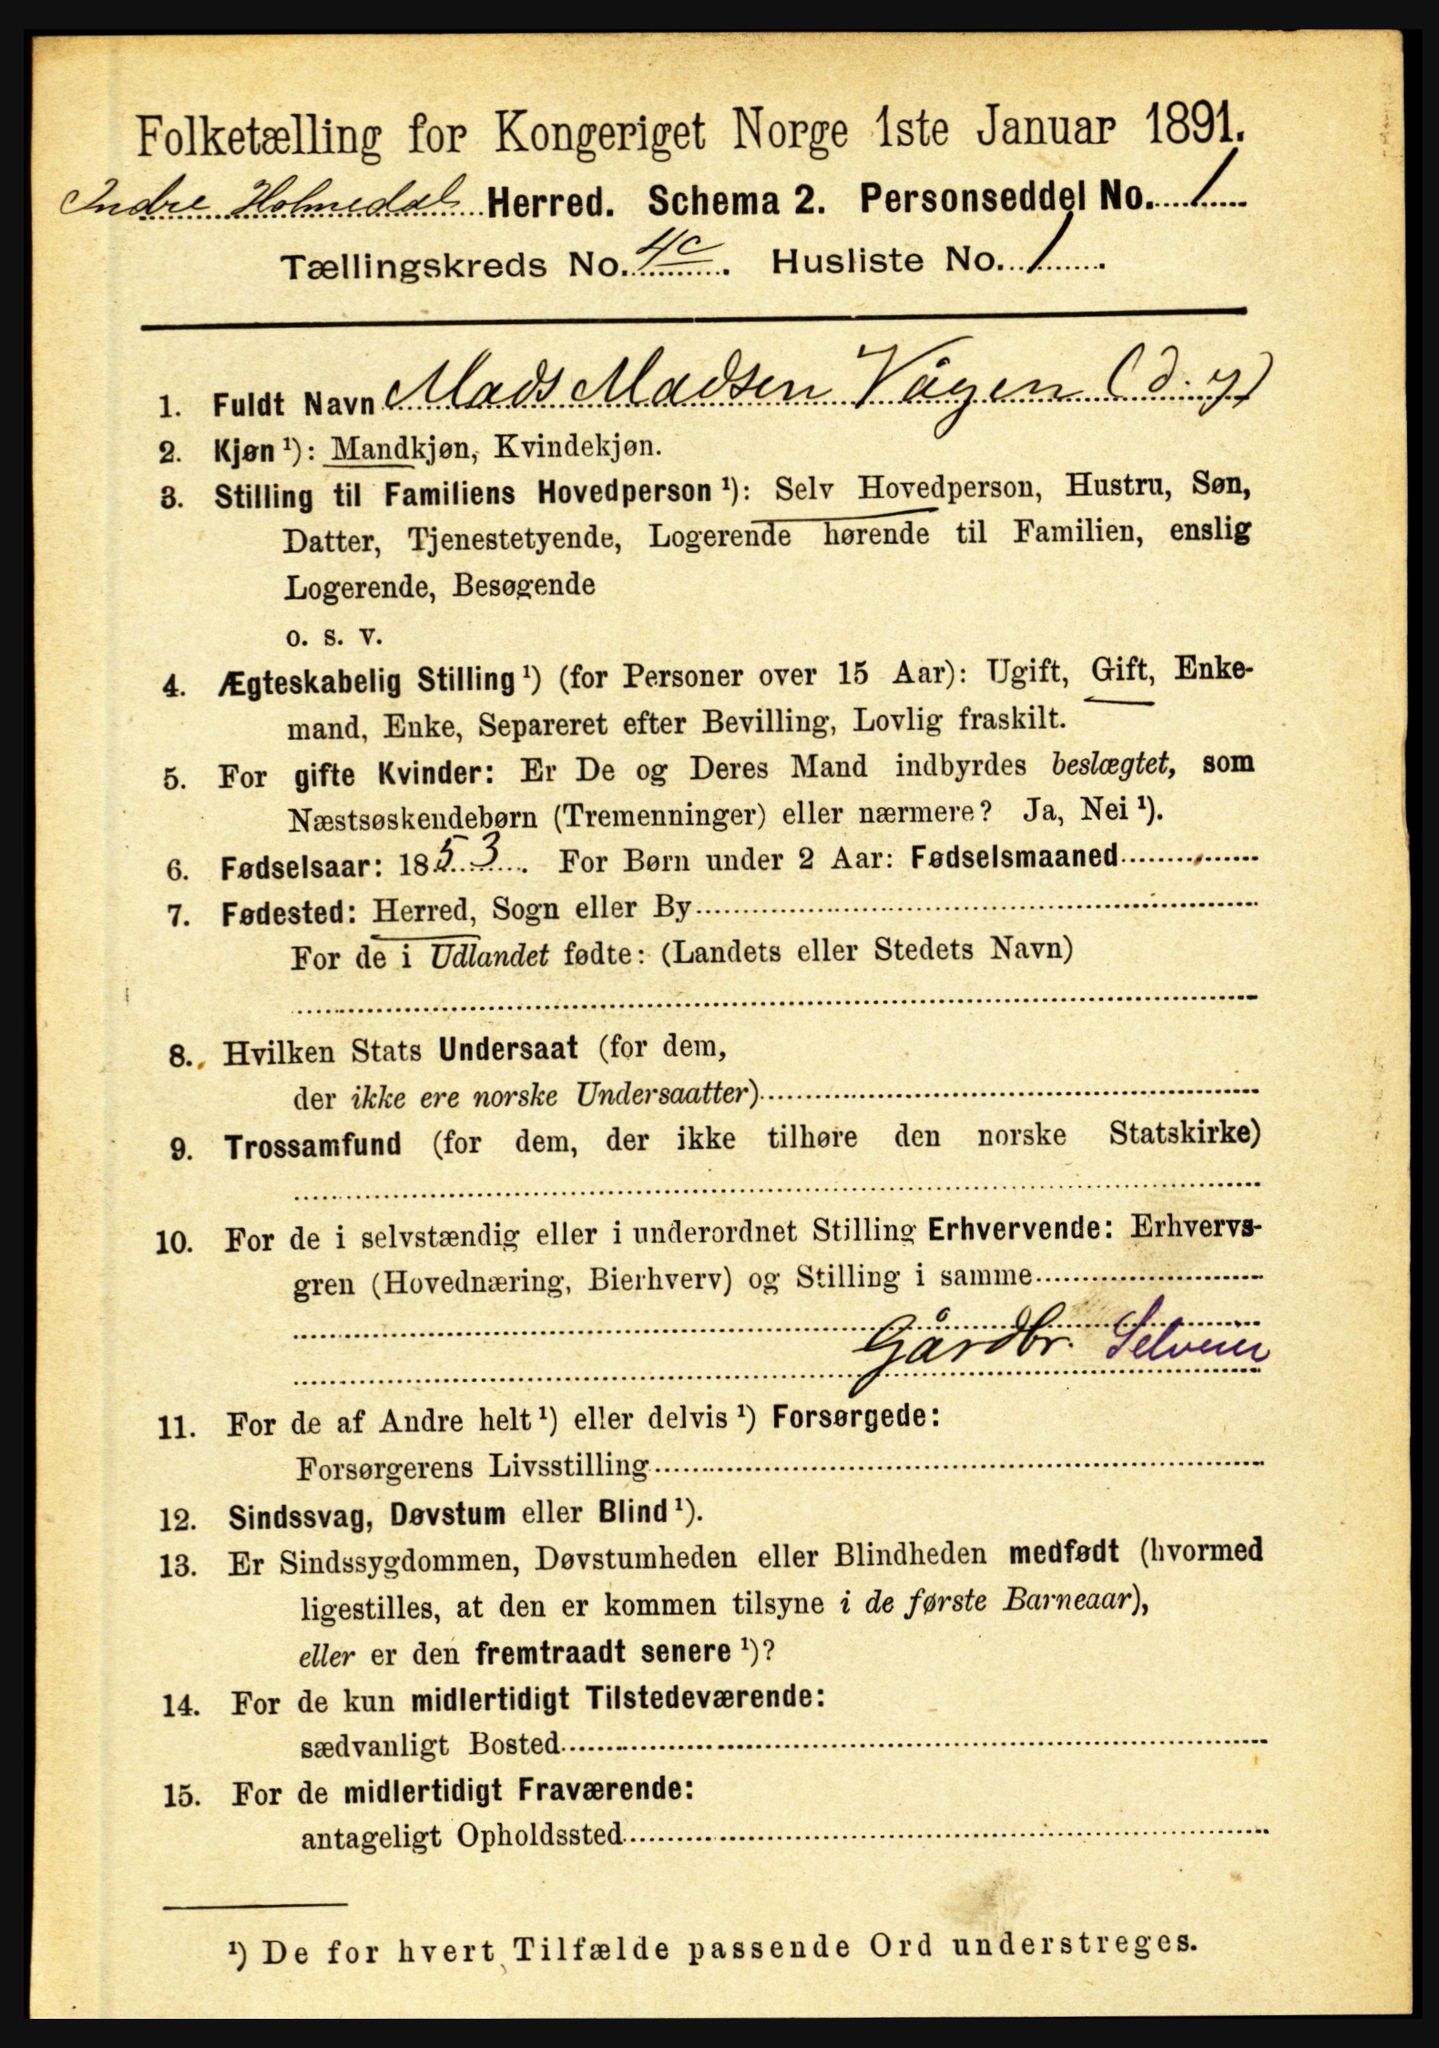 Folketælling for Kongeriget Norge 1ste Januar 1891.
Indre Holmedal Herred. Schema 2. Personseddel No. 1
Tællingskreds No. 4c. Husliste No. 1
1. Fuldt Navn Mads Madsen Vågen (d. y)
2. Kjøn ¹): Mandkjøn, Kvindekjøn.
3. Stilling til Familiens Hovedperson ¹): Selv Hovedperson, Hustru, Søn,
Datter, Tjenestetyende, Logerende hørende til Familien, enslig
Logerende, Besøgende
o. s. v.
4. Ægteskabelig Stilling ¹) (for Personer over 15 Aar): Ugift, Gift, Enke-
mand, Enke, Separeret efter Bevilling, Lovlig fraskilt.
5. For gifte Kvinder: Er De og Deres Mand indbyrdes beslægtet, som
Næstsøskendebørn (Tremenninger) eller nærmere? Ja, Nei ¹).
6. Fødselsaar: 1853. For Børn under 2 Aar: Fødselsmaaned
7. Fødested: Herred, Sogn eller By
For de i Udlandet fødte: (Landets eller Stedets Navn)
8. Hvilken Stats Undersaat (for dem,
der ikke ere norske Undersaatter)
9. Trossamfund (for dem, der ikke tilhøre den norske Statskirke)
10. For de i selvstændig eller i underordnet Stilling Erhvervende: Erhvervs-
gren (Hovednæring, Bierhverv) og Stilling i samme
Gårdbr. Selveier
11. For de af Andre helt ¹) eller delvis ¹) Forsørgede:
Forsørgerens Livsstilling
12. Sindssvag, Døvstum eller Blind ¹).
13. Er Sindssygdommen, Døvstumheden eller Blindheden medfødt (hvormed
ligestilles, at den er kommen tilsyne i de første Barneaar),
eller er den fremtraadt senere ¹)?
14. For de kun midlertidigt Tilstedeværende:
sædvanligt Bosted
15. For de midlertidigt Fraværende:
antageligt Opholdssted
¹) De for hvert Tilfælde passende Ord understreges.